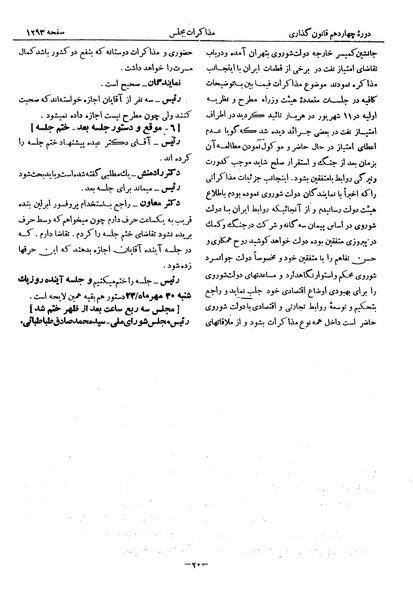 دورهٔ چهاردهم قانون گذاری
مذاکرات مجلس
صفحه ۱۲۹۳
جانشین کمیسر خارجه دولت شوروی بتهران آمده و در باب
تقاضای امتیاز نفت در برخی از قطعات ایران با اینجانب
مذاکره نمودند. موضوع مذاکرات فیما بین با توضیحات
کافیه در جلسات متعددهٔ هیئت وزراء مطرح و نظریه
اولیه در ۱۱ شهریور در هر بار تائید گردید در اطراف
امتیاز نفت در بعضی جرائد دیده شد که گویا عدم
اعطای امتیاز در حال حاضر و موکول نمودن مطالعه آن
بزمان بعد از جنگ و استقرار صلح شاید موجب کدورت
و تیرگی روابط با متفقین بشود. اینجانب جزئیات مذاکراتی
را که اخیراً با نمایندگان دولت شوروی نموده بودم باطلاع
هیئت دولت رسانیدم و از آنجائیکه روابط ایران با دولت
شوروی در اساس پیمان سه گانه و شرکت در جنگ و کمک
در پیروزی متفقین بوده دولت خواهد کوشید روح همکاری و
حسن تفاهم را با متفقین خود و مخصوصاً دولت جوانمرد
شوروی محکم و استوار نگاهدارد و مساعدتهای دولت شوروی
را برای بهبودی اوضاع اقتصادی خود جلب نماید و راجع
بتحکیم و توسعهٔ روابط تجارتی و اقتصادی با دولت شوروی
حاضر است داخل همه نوع مذاکرات بشود و از ملاقاتهای
حضوری و مذاکرات دوستانه که بنفع دو کشور باشد کمال
مسرت را خواهد داشت.
نمایندگان ــ صحیح است.
رئیس ــ سه نفر از آقایان اجازه خواسته‌اند که صحبت
کنند ولی چون مطرح نیست اجازه داده نمیشود.
[۶ ــ موقع و دستور جلسه بعد ــ ختم جلسه]
رئیس ــ آقای دکتر عبده پیشنهاد ختم جلسه را
کرده اند.
دکتر رادمنش ــ یك مطلبی گفته شده است و باید بحث شود
رئیس ــ میماند برای جلسه بعد.
دکتر معاون ــ راجع باستخدام پروفسور ابرلین بنده
قریب به یکساعت حرف دارم چون میخواهم که وسط حرف
بریده نشود تقاضای ختم جلسه را کردم. تقاضا دارم. که
در جلسه آینده آقایان اجازه بدهند که این حرفها
زده شود.
رئیس ــ جلسه را ختم میکنیم و جلسه آینده روز یك
شنبه ۳۰ مهر ماه/۲۳ دستور هم بقیه همین لایحه است.
[مجلس سه ربع ساعت بعد از ظهر ختم شد]
رئیس مجلس شورای ملی ــ سید محمد صادق طباطبائی.
ــ۲۰ــ